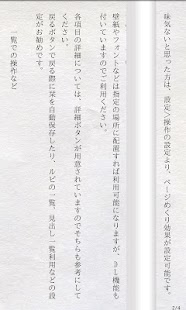 味気ないと思った方は、設定>操作の設定より、ページめくり効果が設定可能です。
壁紙やフォントなどは指定の場所に配置すれば利用可能になりますが、ＤＬ機能も
付いていますのでご利用ください。
各項目の詳細については、詳細ボタンが用意されていますのでそちらも参考にして
ください。
戻るボタンで戻る際に栞を自動保存したり、ルビの一覧、見出し一覧利用などの設
定がお勧めです。
一覧での操作など
2/4